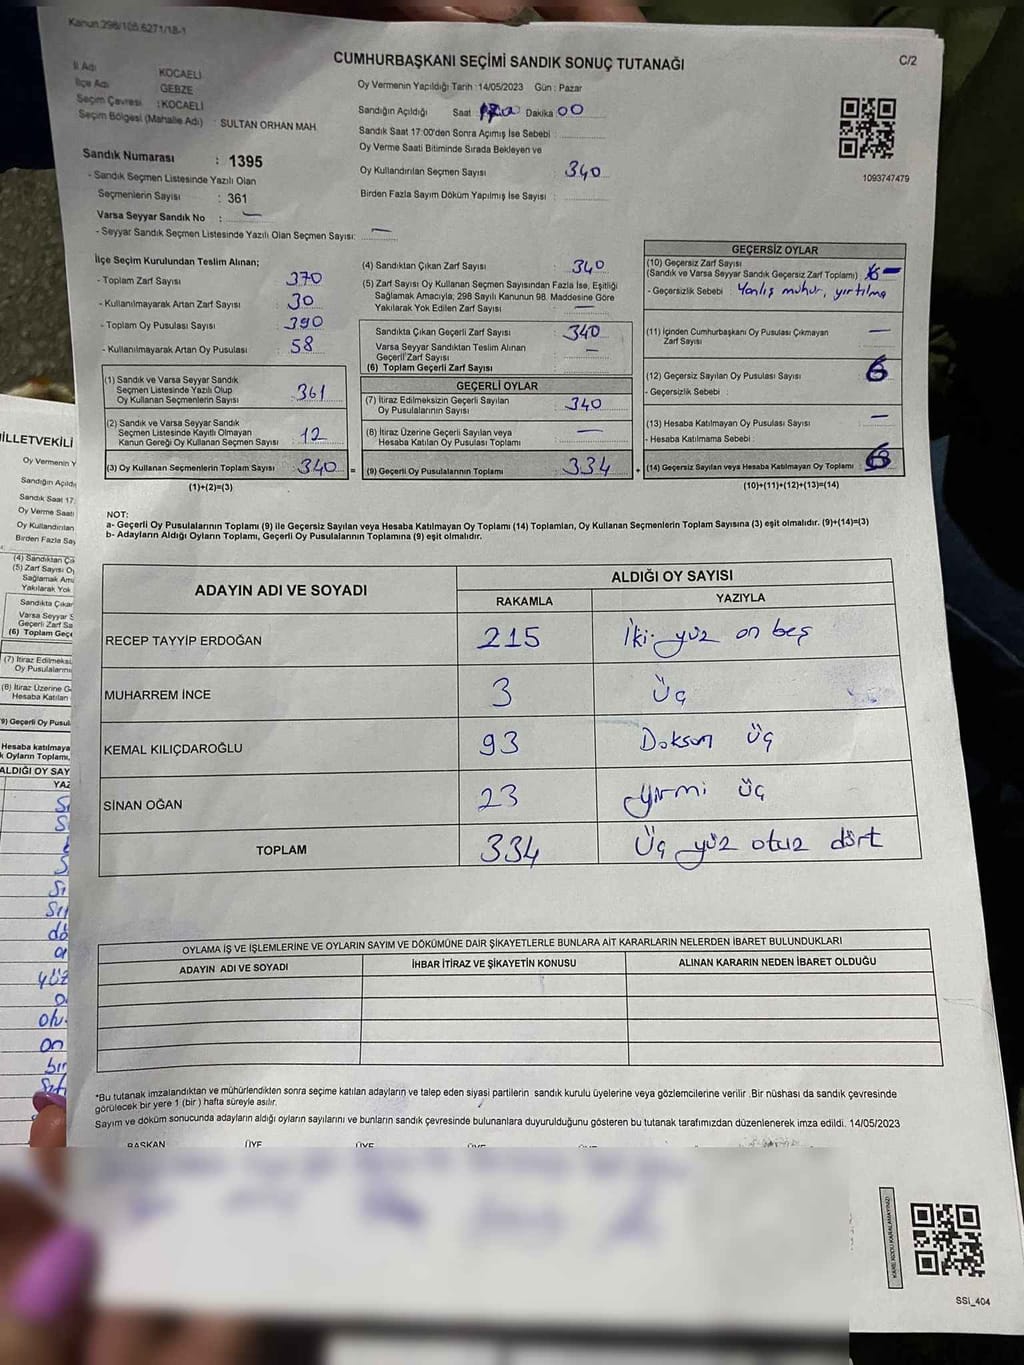 Kanun.298/105.6271/18-1
CUMHURBAŞKANI SEÇİMİ SANDIK SONUÇ TUTANAĞI
C/2
İl Adı KOCAELİ
İlçe Adı GEBZE
Seçim Çevresi : KOCAELİ
Seçim Bölgesi (Mahalle Adı) : SULTAN ORHAN MAH.
Sandık Numarası : 1395
- Sandık Seçmen Listesinde Yazılı Olan
Seçmenlerin Sayısı : 361
Varsa Seyyar Sandık No : —
- Seyyar Sandık Seçmen Listesinde Yazılı Olan Seçmen Sayısı: —
Oy Vermenin Yapıldığı Tarih : 14/05/2023 Gün : Pazar
Sandığın Açıldığı Saat Dakika 00
Sandık Saat 17:00'den Sonra Açımış İse Sebebi :
Oy Verme Saati Bitiminde Sırada Bekleyen ve
Oy Kullandırılan Seçmen Sayısı : 340
Birden Fazla Sayım Döküm Yapılmış İse Sayısı :
1093747479
İlçe Seçim Kurulundan Teslim Alınan;
- Toplam Zarf Sayısı 370
- Kullanılmayarak Artan Zarf Sayısı 30
- Toplam Oy Pusulası Sayısı 390
- Kullanılmayarak Artan Oy Pusulası 58
(1) Sandık ve Varsa Seyyar Sandık
Seçmen Listesinde Yazılı Olup
Oy Kullanan Seçmenlerin Sayısı 361
(2) Sandık ve Varsa Seyyar Sandık
Seçmen Listesinde Kayıtlı Olmayan
Kanun Gereği Oy Kullanan Seçmen Sayısı 12
(3) Oy Kullanan Seçmenlerin Toplam Sayısı 340 =
(1)+(2)=(3)
(4) Sandıktan Çıkan Zarf Sayısı 340
(5) Zarf Sayısı Oy Kullanan Seçmen Sayısından Fazla İse, Eşitliği
Sağlamak Amacıyla; 298 Sayılı Kanunun 98. Maddesine Göre
Yakılarak Yok Edilen Zarf Sayısı —
Sandıkta Çıkan Geçerli Zarf Sayısı 340
Varsa Seyyar Sandıktan Teslim Alınan
Geçerli Zarf Sayısı —
(6) Toplam Geçerli Zarf Sayısı
GEÇERLİ OYLAR
(7) İtiraz Edilmeksizin Geçerli Sayılan
Oy Pusulalarının Sayısı 340
(8) İtiraz Üzerine Geçerli Sayılan veya
Hesaba Katılan Oy Pusulası Toplamı —
(9) Geçerli Oy Pusulalarının Toplamı 334 +
GEÇERSİZ OYLAR
(10) Geçersiz Zarf Sayısı
(Sandık ve Varsa Seyyar Sandık Geçersiz Zarf Toplamı) —
- Geçersizlik Sebebi : Yanlış mühür, yırtılma
(11) İçinden Cumhurbaşkanı Oy Pusulası Çıkmayan
Zarf Sayısı —
(12) Geçersiz Sayılan Oy Pusulası Sayısı 6
- Geçersizlik Sebebi :
(13) Hesaba Katılmayan Oy Pusulası Sayısı —
- Hesaba Katılmama Sebebi :
(14) Geçersiz Sayılan veya Hesaba Katılmayan Oy Toplamı 6
(10)+(11)+(12)+(13)=(14)
NOT:
a- Geçerli Oy Pusulalarının Toplamı (9) ile Geçersiz Sayılan veya Hesaba Katılmayan Oy Toplamı (14) Toplamları, Oy Kullanan Seçmenlerin Toplam Sayısına (3) eşit olmalıdır. (9)+(14)=(3)
b- Adayların Aldığı Oyların Toplamı, Geçerli Oy Pusulalarının Toplamına (9) eşit olmalıdır.
ADAYIN ADI VE SOYADI ALDIĞI OY SAYISI
RAKAMLA YAZIYLA
RECEP TAYYİP ERDOĞAN 215 İki yüz on beş
MUHARREM İNCE 3 Üç
KEMAL KILIÇDAROĞLU 93 Doksan üç
SİNAN OĞAN 23 yirmi üç
TOPLAM 334 Üç yüz otuz dört
OYLAMA İŞ VE İŞLEMLERİNE VE OYLARIN SAYIM VE DÖKÜMÜNE DAİR ŞİKAYETLERLE BUNLARA AİT KARARLARIN NELERDEN İBARET BULUNDUKLARI
ADAYIN ADI VE SOYADI İHBAR İTİRAZ VE ŞİKAYETİN KONUSU ALINAN KARARIN NEDEN İBARET OLDUĞU
*Bu tutanak imzalandıktan ve mühürlendikten sonra seçime katılan adayların ve talep eden siyasi partilerin sandık kurulu üyelerine veya gözlemcilerine verilir .Bir nüshası da sandık çevresinde
görülecek bir yere 1 (bir ) hafta süreyle asılır.
Sayım ve döküm sonucunda adayların aldığı oyların sayılarını ve bunların sandık çevresinde bulunanlara duyurulduğunu gösteren bu tutanak tarafımızdan düzenlenerek imza edildi. 14/05/2023
BAŞKAN ÜYE ÜYE
KARE KODU KARALAMAYINIZ!
SSİ_404
MİLLETVEKİLİ
Oy Vermenin Y
Sandığın Açıldı
Sandık Saat 17:
Oy Verme Saati
Oy Kullandırılan
Birden Fazla Say
(4) Sandıktan Çık
(5) Zarf Sayısı O
Sağlamak Ama
Yakılarak Yok
Sandıkta Çıkar
Varsa Seyyar S
Geçerli Zarf Sa
(6) Toplam Geçe
(7) İtiraz Edilmeksi
Oy Pusulalarını
(8) İtiraz Üzerine G
Hesaba Katılan
(9) Geçerli Oy Pusul
Hesaba katılmaya
k Oyların Toplamı,
ALDIĞI OY SAY
YAZ
yüz
on